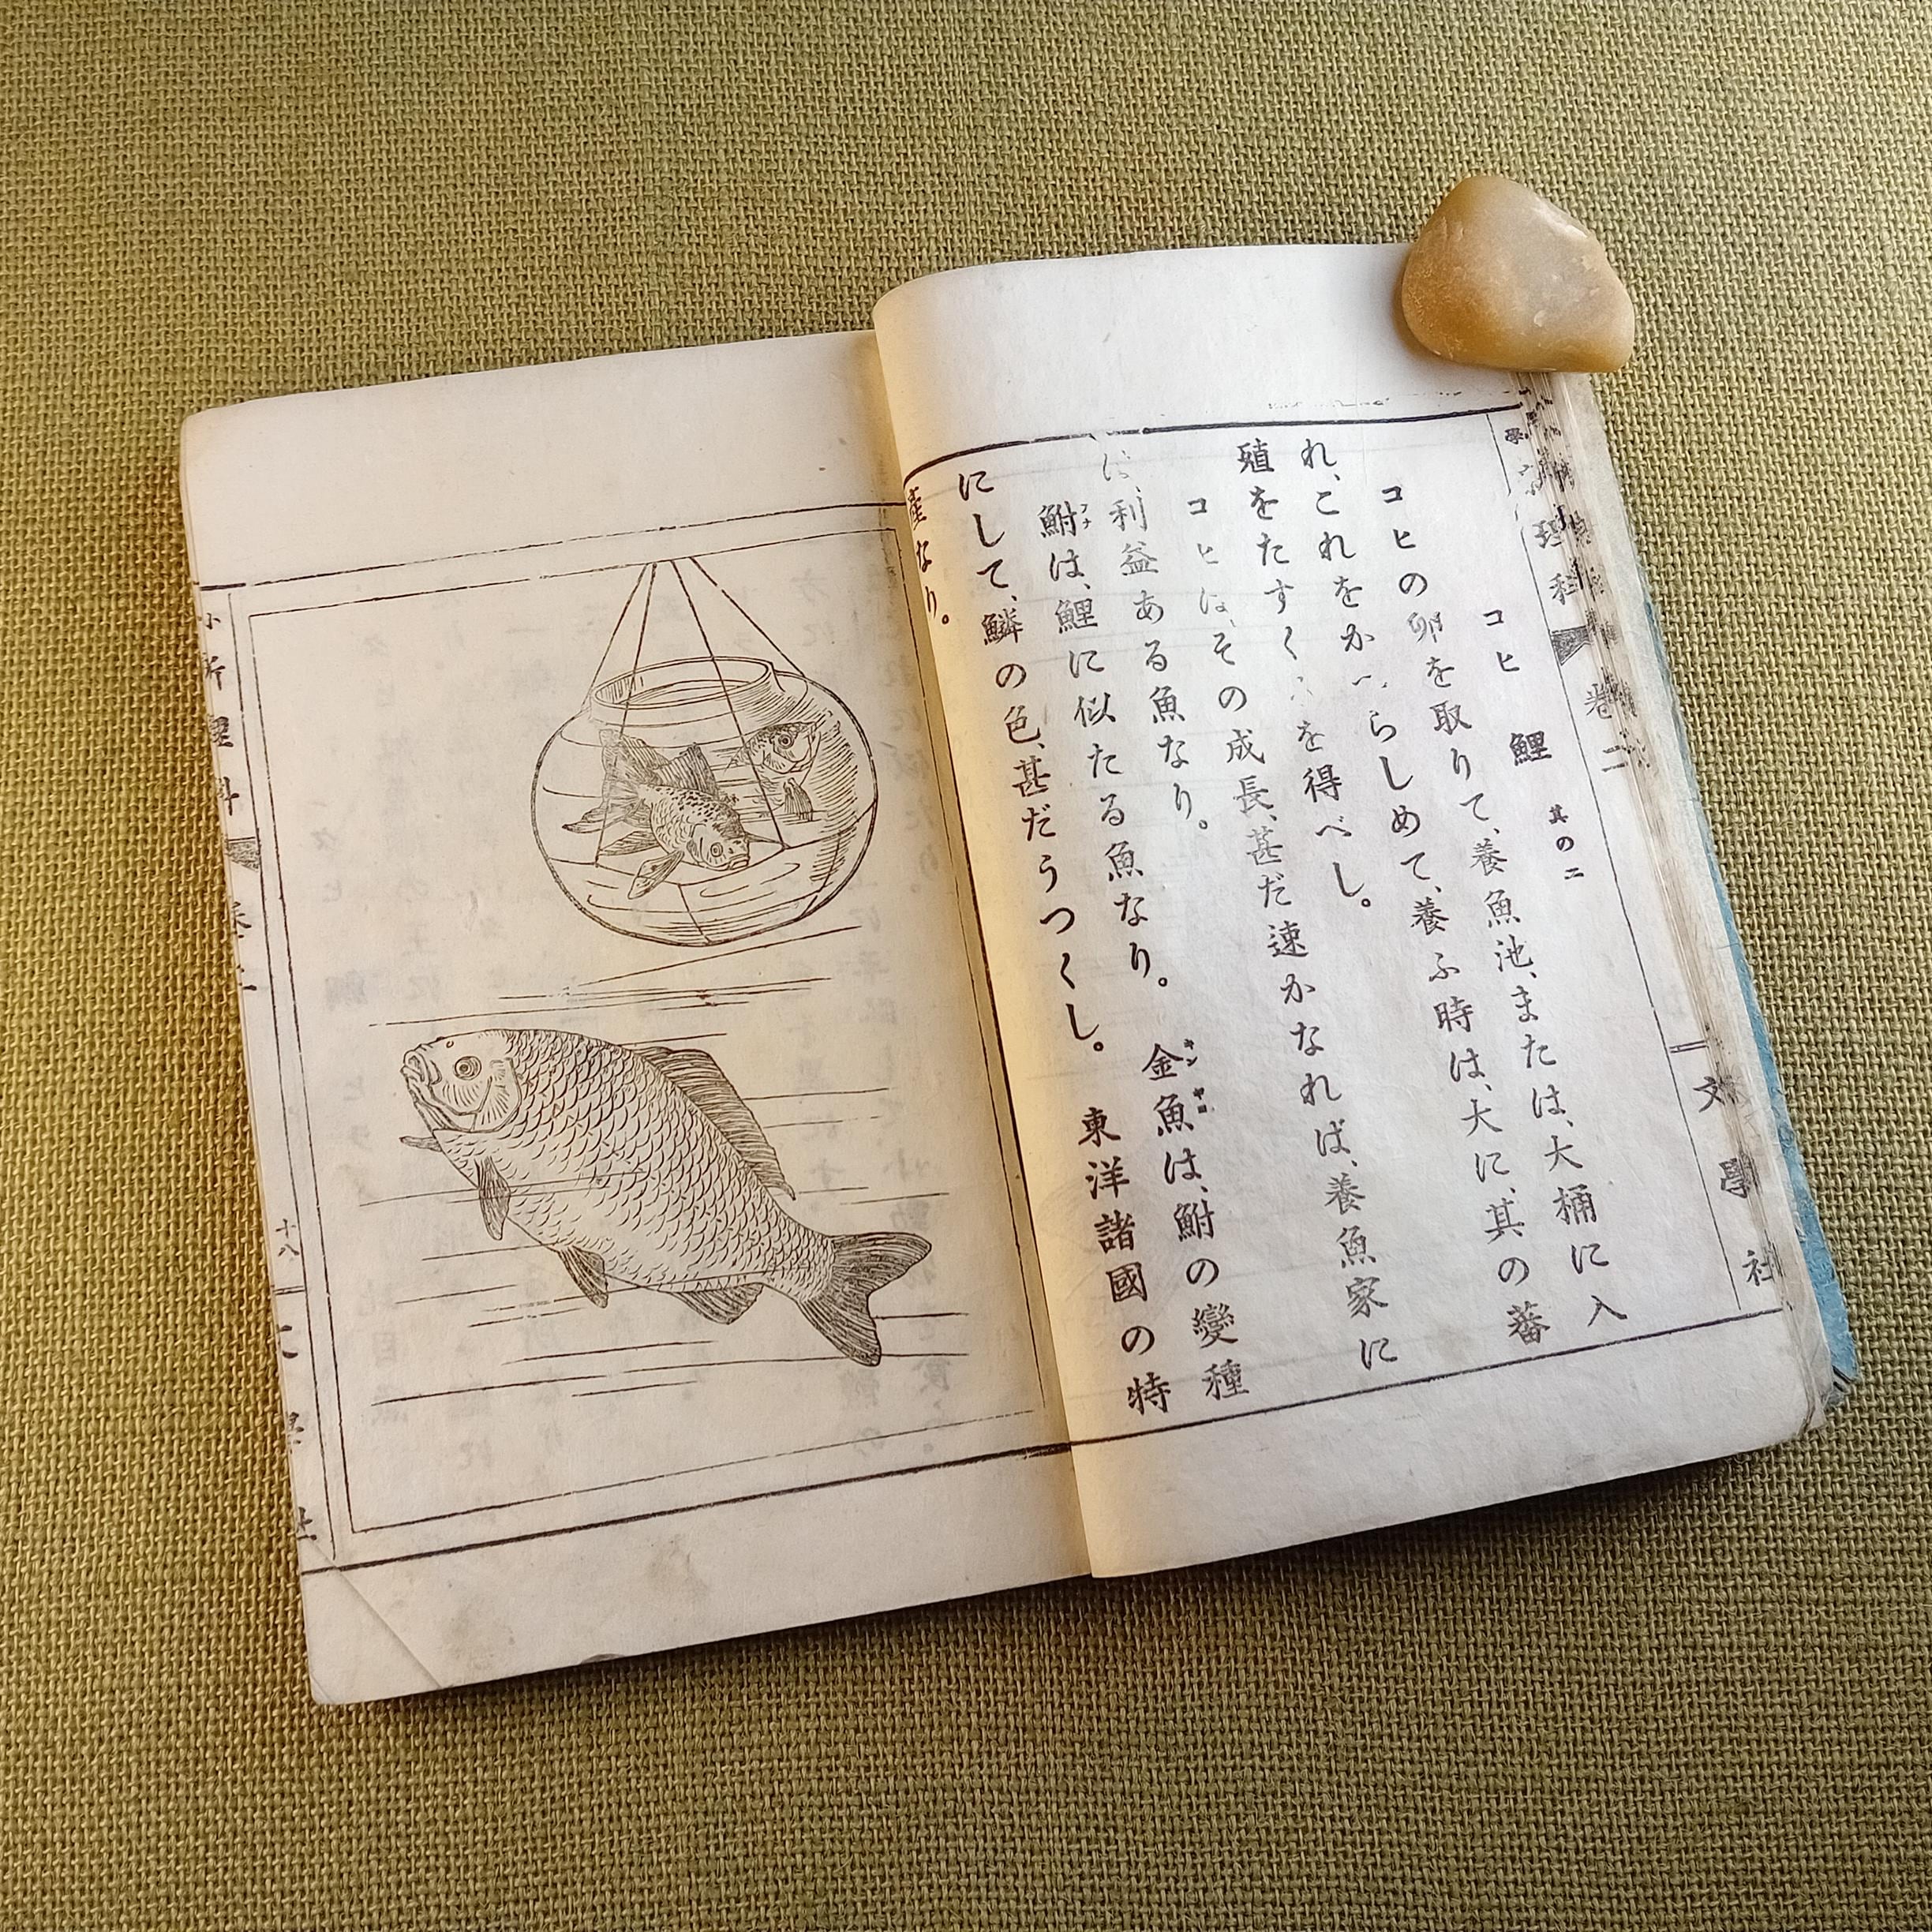 理科 卷二 文學社
コヒ 鯉 其の二
コヒの卵を取りて、養魚池、または、大桶に入
れ、これをかへらしめて、養ふ時は、大に、其の蕃
殖をたすくるを得べし。
コヒは、その成長、甚だ速かなれば、養魚家に
は、利益ある魚なり。
鮒は、鯉に似たる魚なり。 金魚は、鮒の變種
にして、鱗の色、甚だうつくし。 東洋諸國の特
產なり。
十八